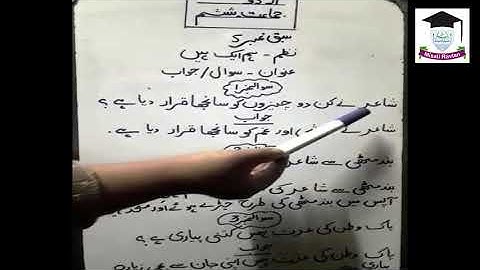 اردو
جماعت ششم
سبق نمبر 5
نظم - ہم ایک ہیں
عنوان - سوال / جواب
سوال نمبر 1
شاعر نے کن دو چیزوں کو سانجھا قرار دیا ہے ؟
جواب
شاعر نے اور غم کو سانجھا قرار دیا ہے .
بند مٹھی سے شاعر
بند مٹھی سے شاعر کی
آپس میں بند مٹھی کی طرح جڑے ہوئے اور
سوال نمبر 3
پاک وطن کی عزت ہمیں کتنی پیاری ہے ؟
جواب
پاک وطن کی عزت ہمیں اپنی جان سے بھی زیادہ
پیاری
Misali Ravian